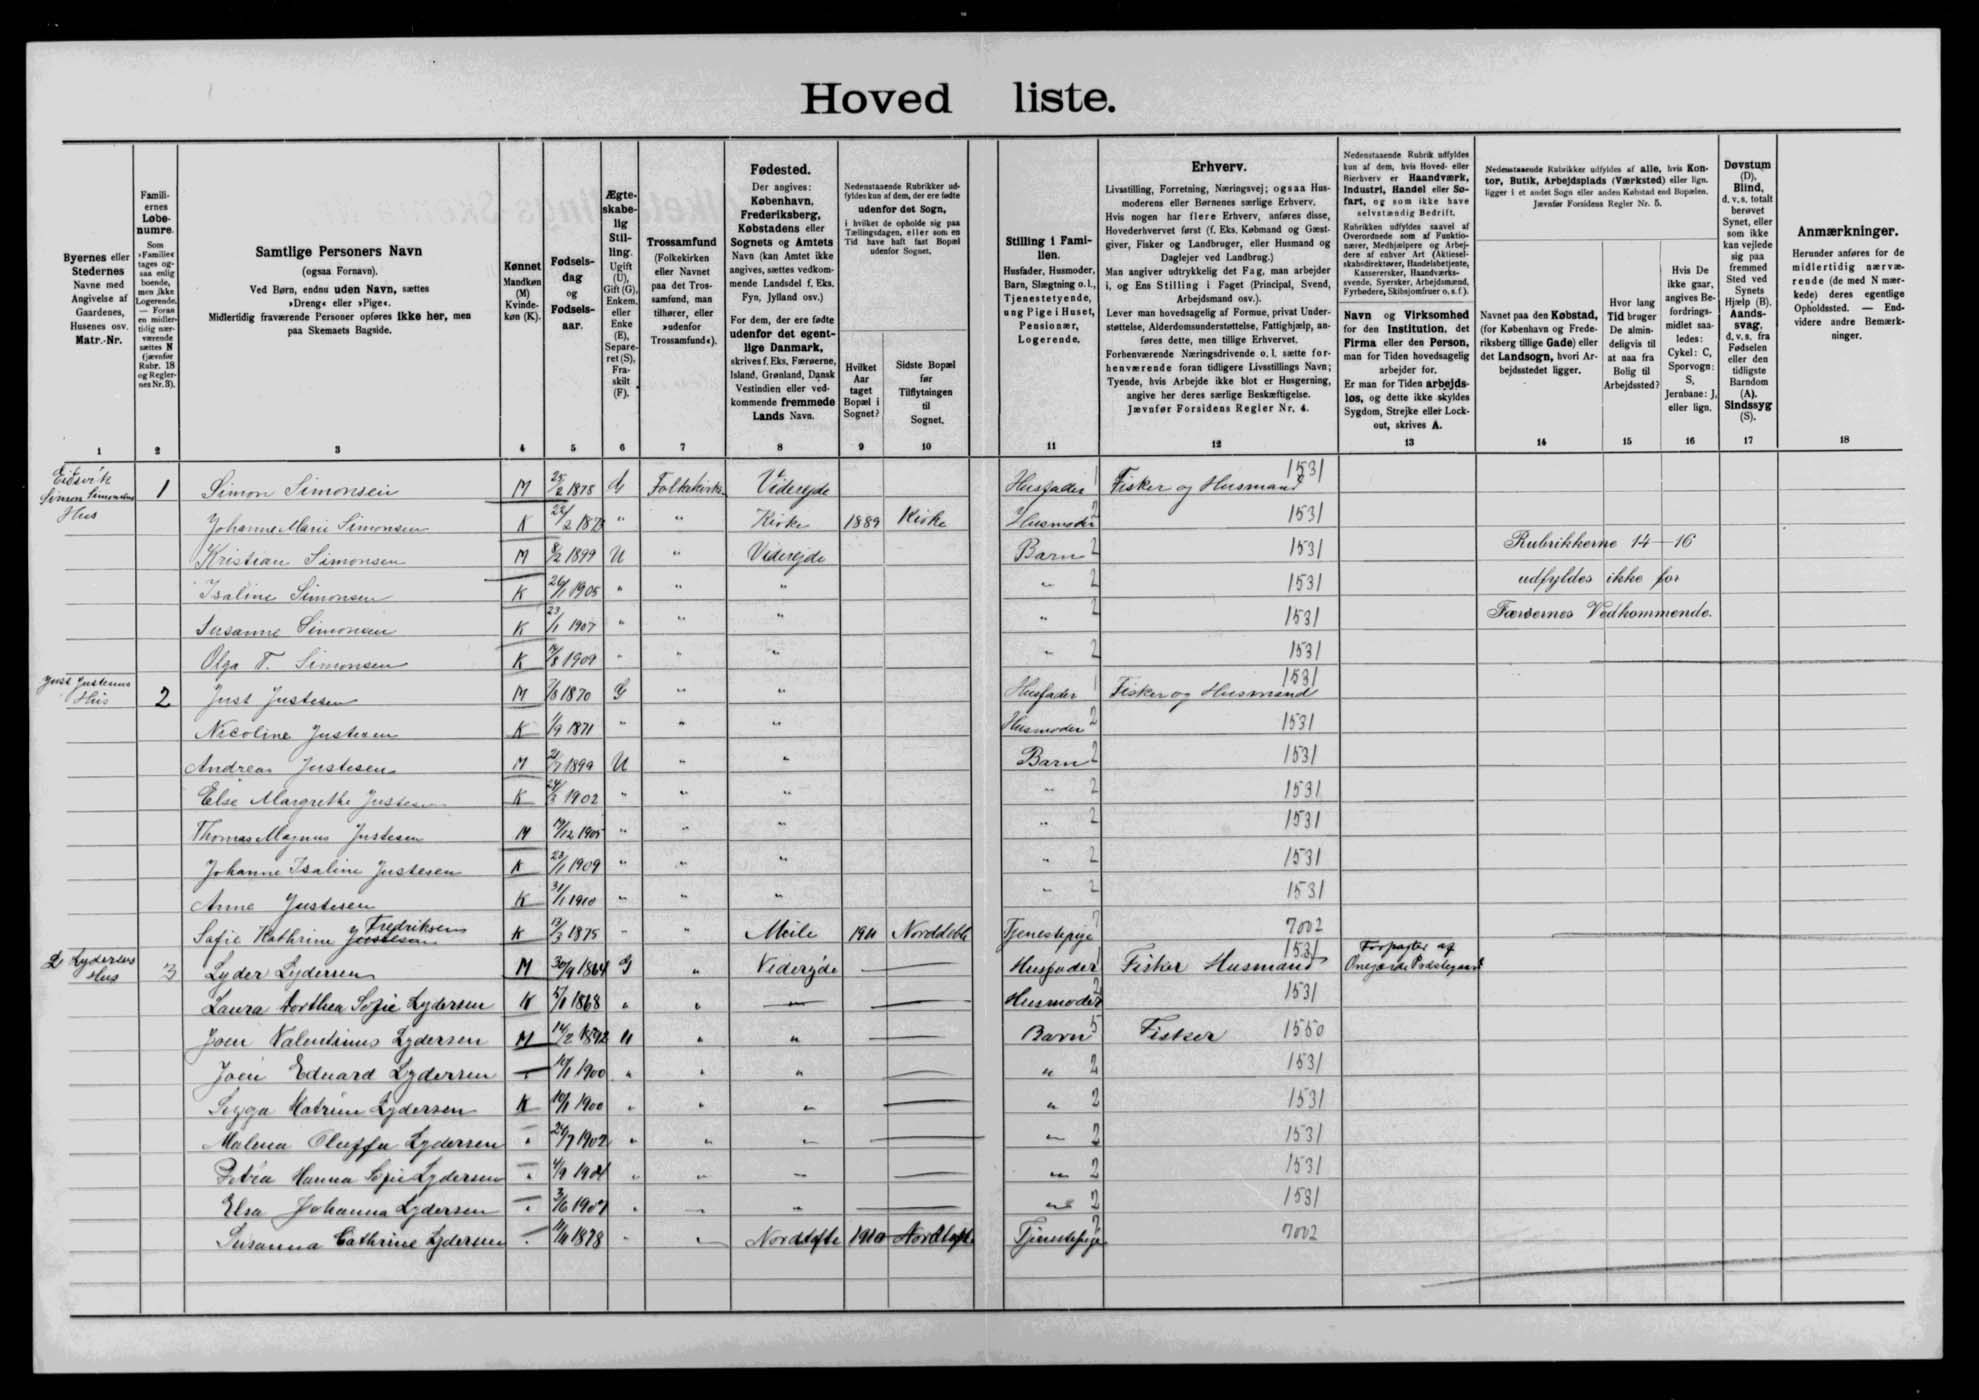 Hoved liste.
Byernes eller Stedernes Navne med Angivelse af Gaardenes, Husenes osv. Matr.-Nr.
Famili-ernes Løbe-numre.
Som »Familie« tages og-saa enlig boende, men ikke Logerende. — Foran en midler-tidig nær-værende sættes N (jævnfør Rubr. 18 og Regler-nes Nr. 3).
Samtlige Personers Navn
(ogsaa Fornavn).
Ved Børn, endnu uden Navn, sættes
»Dreng« eller »Pige«.
Midlertidig fraværende Personer opføres ikke her, men
paa Skemaets Bagside.
Kønnet
Mandkøn (M)
Kvinde-køn (K).
Fødsels-dag og Fødsels-aar.
Ægte-skabe-lig Stil-ling.
Ugift (U), Gift (G), Enkem. eller Enke (E), Separe-ret (S), Fra-skilt (F).
Trossamfund
(Folkekirken eller Navnet paa det Tros-samfund, man tilhører, eller »udenfor Trossamfund«).
Fødested.
Der angives: København, Frederiksberg, Købstadens eller Sognets og Amtets Navn (kan Amtet ikke angives, sættes vedkom-mende Landsdel f. Eks. Fyn, Jylland osv.)
For dem, der ere fødte udenfor det egent-lige Danmark, skrives f. Eks. Færøerne, Island, Grønland, Dansk Vestindien eller ved-kommende fremmede Lands Navn.
Nedenstaaende Rubrikker ud-fyldes kun af dem, der ere fødte udenfor det Sogn, i hvilket de opholde sig paa Tællingsdagen, eller som en Tid have haft fast Bopæl udenfor Sognet.
Hvilket Aar taget Bopæl i Sognet?
Sidste Bopæl før Tilflytningen til Sognet.
Stilling i Fami-lien.
Husfader, Husmoder, Barn, Slægtning o. l., Tjenestetyende, ung Pige i Huset, Pensionær, Logerende.
Erhverv.
Livsstilling, Forretning, Næringsvej; ogsaa Hus-moderens eller Børnenes særlige Erhverv.
Hvis nogen har flere Erhverv, anføres disse, Hovederhvervet først (f. Eks. Købmand og Gæst-giver, Fisker og Landbruger, eller Husmand og Daglejer ved Landbrug.)
Man angiver udtrykkelig det Fag, man arbejder i, og Ens Stilling i Faget (Principal, Svend, Arbejdsmand osv.).
Lever man hovedsagelig af Formue, privat Under-støttelse, Alderdomsunderstøttelse, Fattighjælp, an-føres dette, men tillige Erhvervet.
Forhenværende Næringsdrivende o. l. sætte for-henværende foran tidligere Livsstillings Navn; Tyende, hvis Arbejde ikke blot er Husgerning, angive her deres særlige Beskæftigelse.
Jævnfør Forsidens Regler Nr. 4.
Nedenstaaende Rubrik udfyldes kun af dem, hvis Hoved- eller Bierhverv er Haandværk, Industri, Handel eller Sø-fart, og som ikke have selvstændig Bedrift.
Rubrikken udfyldes saavel af Overordnede som af Funktio-nærer, Medhjælpere og Arbej-dere af enhver Art (Aktiesel-skabsdirektører, Handelsbetjente, Kasserersker, Haandværks-svende, Syersker, Arbejdsmænd, Fyrbødere, Skibsjomfruer o. s. f.).
Navn og Virksomhed for den Institution, det Firma eller den Person, man for Tiden hovedsagelig arbejder for.
Er man for Tiden arbejds-løs, og dette ikke skyldes Sygdom, Strejke eller Lock-out, skrives A.
Nedenstaaende Rubrikker udfyldes af alle, hvis Kon-tor, Butik, Arbejdsplads (Værksted) eller lign. ligger i et andet Sogn eller anden Købstad end Bopælen.
Jævnfør Forsidens Regler Nr. 5.
Navnet paa den Købstad, (for København og Frede-riksberg tillige Gade) eller det Landsogn, hvori Ar-bejdsstedet ligger.
Hvor lang Tid bruger De almin-deligvis til at naa fra Bolig til Arbejdssted?
Hvis De ikke gaar, angives Be-fordrings-midlet saa-ledes: Cykel: C, Sporvogn: S, Jernbane: J, eller lign.
Døvstum (D), Blind, d. v. s. totalt berøvet Synet, eller som ikke kan vejlede sig paa fremmed Sted ved Synets Hjælp (B). Aands-svag, d. v. s. fra Fødselen eller den tidligste Barndom (A). Sindssyg (S).
Anmærkninger.
Herunder anføres for de midlertidig nærvæ-rende (de med N mær-kede) deres egentlige Opholdssted. — End-videre andre Bemærk-ninger.
1 2 3 4 5 6 7 8 9 10 11 12 13 14 15 16 17 18
Eidsvik Simon Simonsens Hus 1 Simon Simonsen M 25/2 1878 G Folkekirke Viderejde Husfader 1 Fisker og Husmand 1531
Johanne Marie Simonsen K 22/2 1878 " " Kirke 1889 Kirke Husmoder 2 1531
Kristian Simonsen M 8/2 1899 U " Viderejde Barn 2 1531 Rubrikkerne 14-16
Isaline Simonsen K 26/1 1905 " " " " 2 1531 udfyldes ikke for
Susanne Simonsen K 23/1 1907 " " " " 2 1531 Færøernes Vedkommende.
Olga T. Simonsen K /8 1909 " " " " 2 1531
Just Justesens Hus 2 Just Justesen M /8 1870 G " " Husfader 1 Fisker og Husmand 1531
Nicoline Justesen K 1/9 1871 " " " Husmoder 2 1531
Andreas Justesen M 21/7 1899 U " " Barn 2 1531
Else Margrethe Justesen K 24/3 1902 " " " " 2 1531
Thomas Magnus Justesen M /12 1905 " " " " 2 1531
Johanne Isaline Justesen K 23/1 1909 " " " " 2 1531
Anne Justesen K 31/1 1910 " " " " 2 1531
Sofie Kathrine Justesen Fredriksen K 13/3 1875 " " 1911 Tjenestepige 7 7002
L Lydersens Hus 3 Lyder Lydersen M 30/9 1864 G " Viderejde — Husfader 1 Fisker Husmand 1531 Forpagter af
Laura Dorthea Sofie Lydersen K 5/1 1868 " " " — Husmoder 2 1531
Joen Valentinus Lydersen M 14/2 1892 U " " — Barn 5 Fisker 1550
Joen Eduard Lydersen " 10/1 1900 " " " — " 2 1531
Sigga Katrine Lydersen K 10/1 1900 " " " — " 2 1531
Malena Oluffa Lydersen " 24/7 1902 " " " — " 2 1531
Petra Hanna Sofie Lydersen " 4/9 1904 " " " — " 2 1531
Elsa Johanna Lydersen " 3/6 1907 " " " — " 2 1531
Susanna Cathrine Lydersen " 11/11 1878 " " Nordtofte 1910 Nordtofte Tjenestepige 7 7002